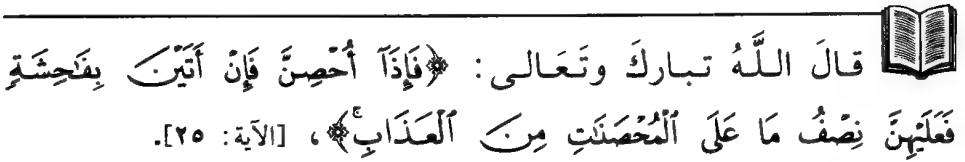 قالَ اللَّهُ تبارَكَ وتَعَالى: ﴿فَإِذَآ أُحْصِنَّ فَإِنْ أَتَيْنَ بِفَٰحِشَةٍ
فَعَلَيْهِنَّ نِصْفُ مَا عَلَى ٱلْمُحْصَنَٰتِ مِنَ ٱلْعَذَابِۚ﴾، [الآية: ٢٥].